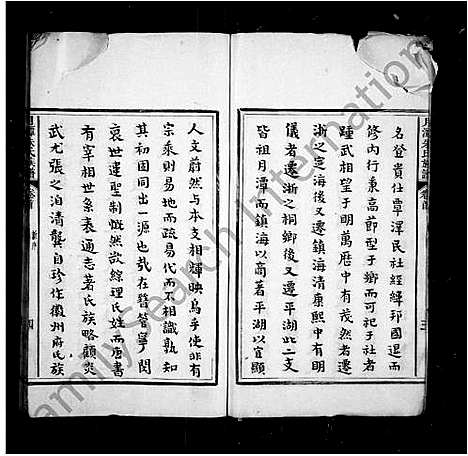 名登貴仕覃澤民社經緯邦國退而
修內行秉高節型于鄉而可祀于社者
踵武相望于明萬曆中有茂然者遷
浙之定海後又遷鎮海清康熙中有明
儀者遷浙之桐鄉後又遷平湖此二支
皆祖月潭而鎮海以高著平湖以宣顯
月潭朱氏族譜 卷首
三
人文蔚然與本支相輝映烏乎使非有
宗乘則易地而疏易代而不相識孰知
其初固同出一源也哉在昔晉寧閔
哀世遠聖制慨然欲綜理氏姓而唐書
有宰相世系表通志著氏族略顧炎
武尤張之洎清龔自珍作徽州府氏族
月潭朱氏族譜 卷首
四
FamilySearch International